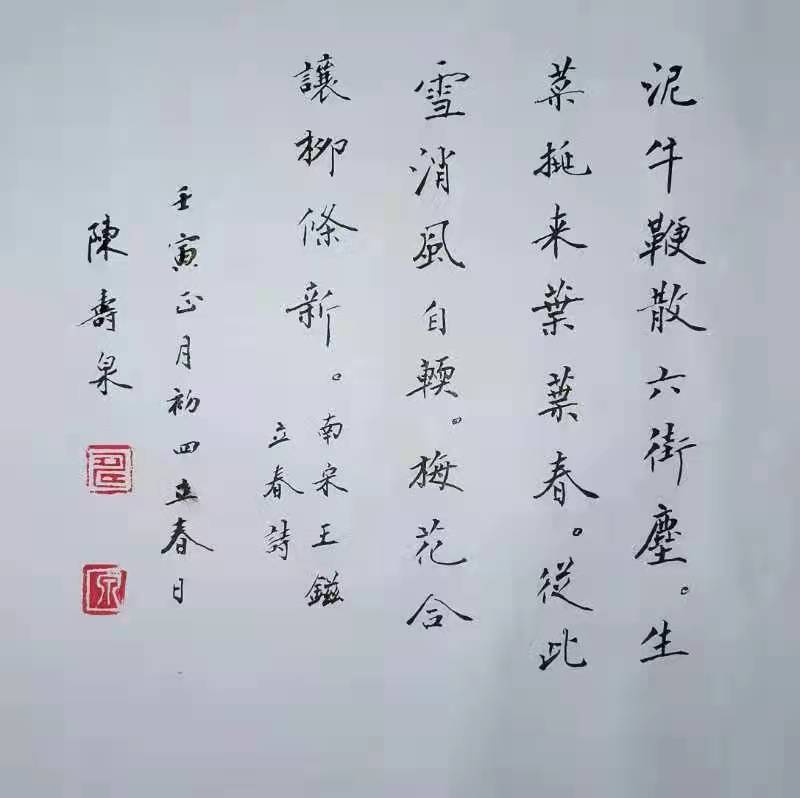 泥牛鞭散六街塵。生
菜挑来葉葉春。從此
雪消風自輭。梅花合
讓柳條新。
南宋王鎡
立春詩
壬寅正月初四立春日
陳壽泉